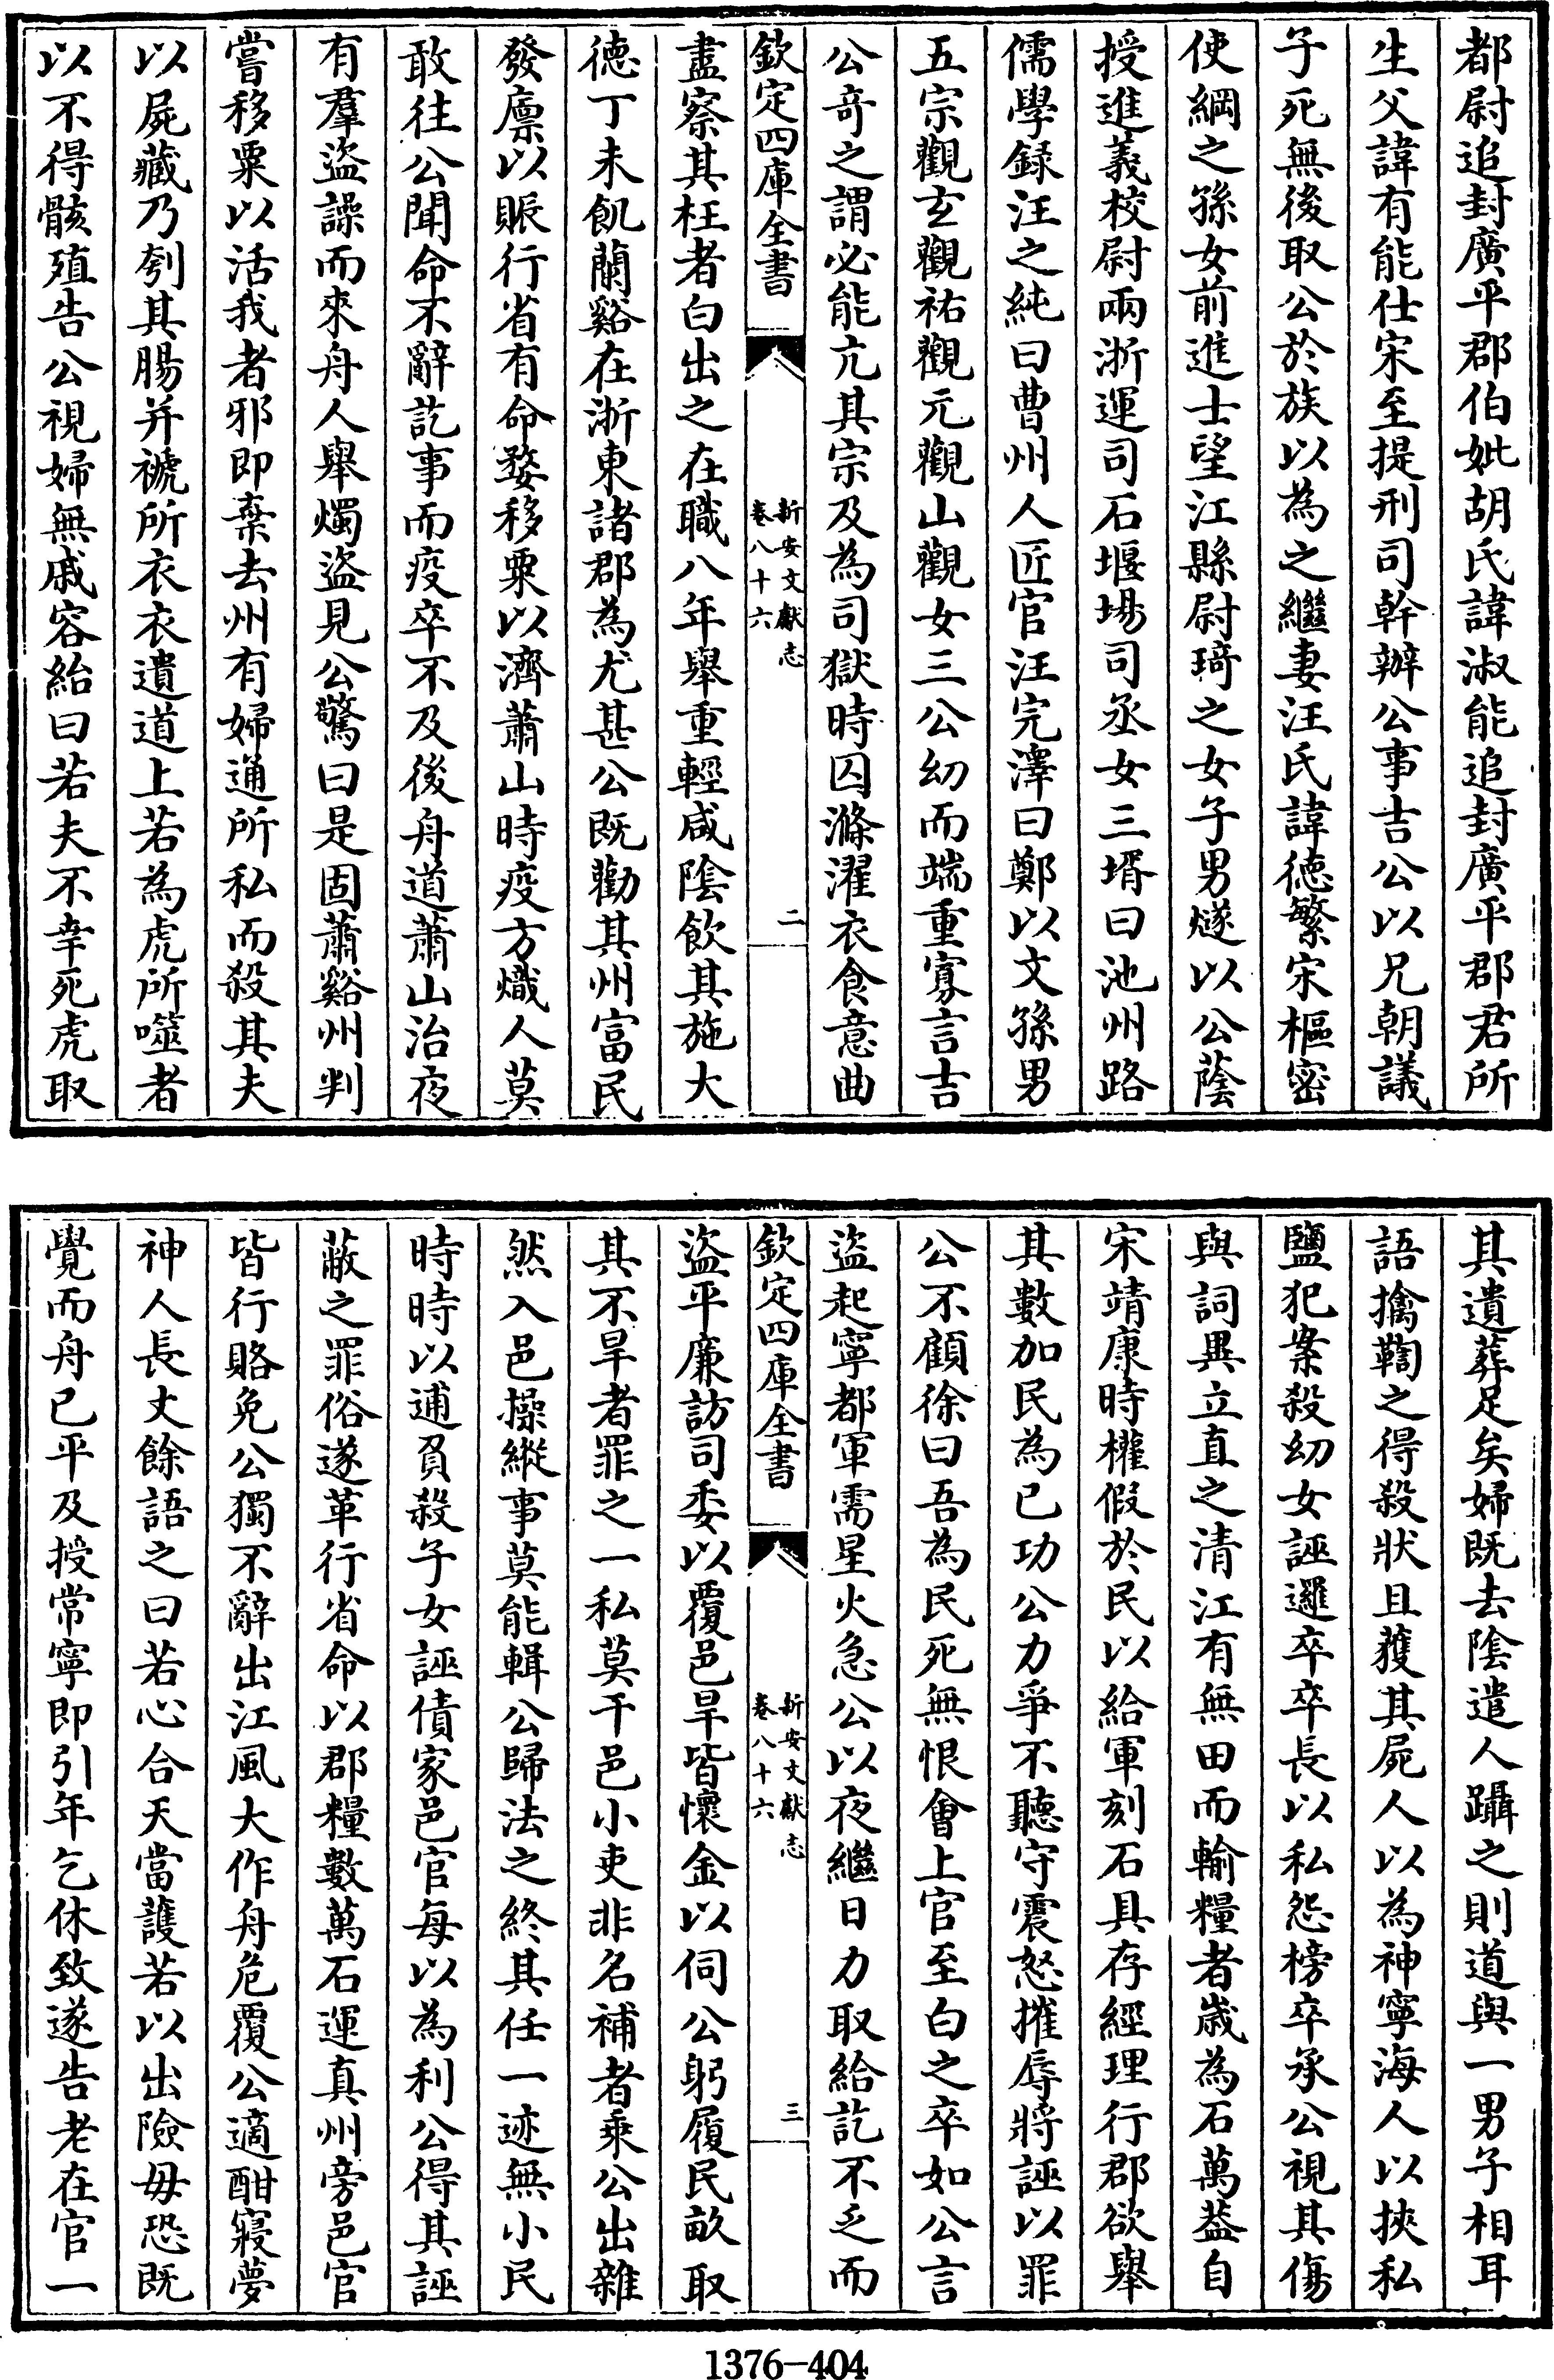 都尉追封廣平郡伯妣胡氏諱淑能追封廣平郡君所
生父諱有能仕宋至提刑司幹辦公事吉公以兄朝議
子死無後取公於族以為之繼妻汪氏諱徳繁宋樞密
使綱之孫女前進士望江縣尉琦之女子男燧以公蔭
授進義校尉兩浙運司石堰場司丞女三壻曰池州路
儒學録汪之純曰曹州人匠官汪完澤曰鄭以文孫男
五宗觀玄觀祐觀元觀山觀女三公幼而端重寡言吉
公竒之謂必能亢其宗及為司獄時囚滌濯衣食意曲
欽定四庫全書
新安文獻志
卷八十六
二
盡察其枉者白出之在職八年舉重輕咸陰飲其施大
徳丁未飢蘭谿在浙東諸郡為尤甚公既勸其州富民
發廪以賑行省有命婺移粟以濟蕭山時疫方熾人莫
敢往公聞命不辭訖事而疫卒不及後舟道蕭山治夜
有羣盜譟而來舟人舉燭盜見公驚曰是固蕭谿州判
嘗移粟以活我者邪即棄去州有婦通所私而殺其夫
以屍藏乃刳其腸并褫所衣衣遺道上若為虎所噬者
以不得骸殖告公視婦無戚容紿曰若夫不幸死虎取
其遺葬足矣婦既去陰遣人躡之則道與一男子相耳
語擒鞫之得殺狀且獲其屍人以為神寧海人以挾私
鹽犯案殺幼女誣邏卒卒長以私怨榜卒承公視其傷
與詞異立直之清江有無田而輸糧者歳為石萬葢自
宋靖康時權假於民以給軍刻石具存經理行郡欲舉
其數加民為已功公力爭不聽守震怒摧辱將誣以罪
公不顧徐曰吾為民死無恨會上官至白之卒如公言
盜起寧都軍需星火急公以夜繼日力取給訖不乏而
欽定四庫全書
新安文獻志
卷八十六
三
盜平廉訪司委以覆邑旱皆懷金以伺公躬履民畝取
其不旱者罪之一私莫干邑小吏非名補者乘公出雜
然入邑操縱事莫能輯公歸法之終其任一迹無小民
時時以逋負殺子女誣債家邑官每以為利公得其誣
蔽之罪俗遂革行省命以郡糧數萬石運真州旁邑官
皆行賂免公獨不辭出江風大作舟危覆公適酣寢夢
神人長丈餘語之曰若心合天當護若以出險毋恐既
覺而舟已平及授常寧即引年乞休致遂告老在官一
1376-404